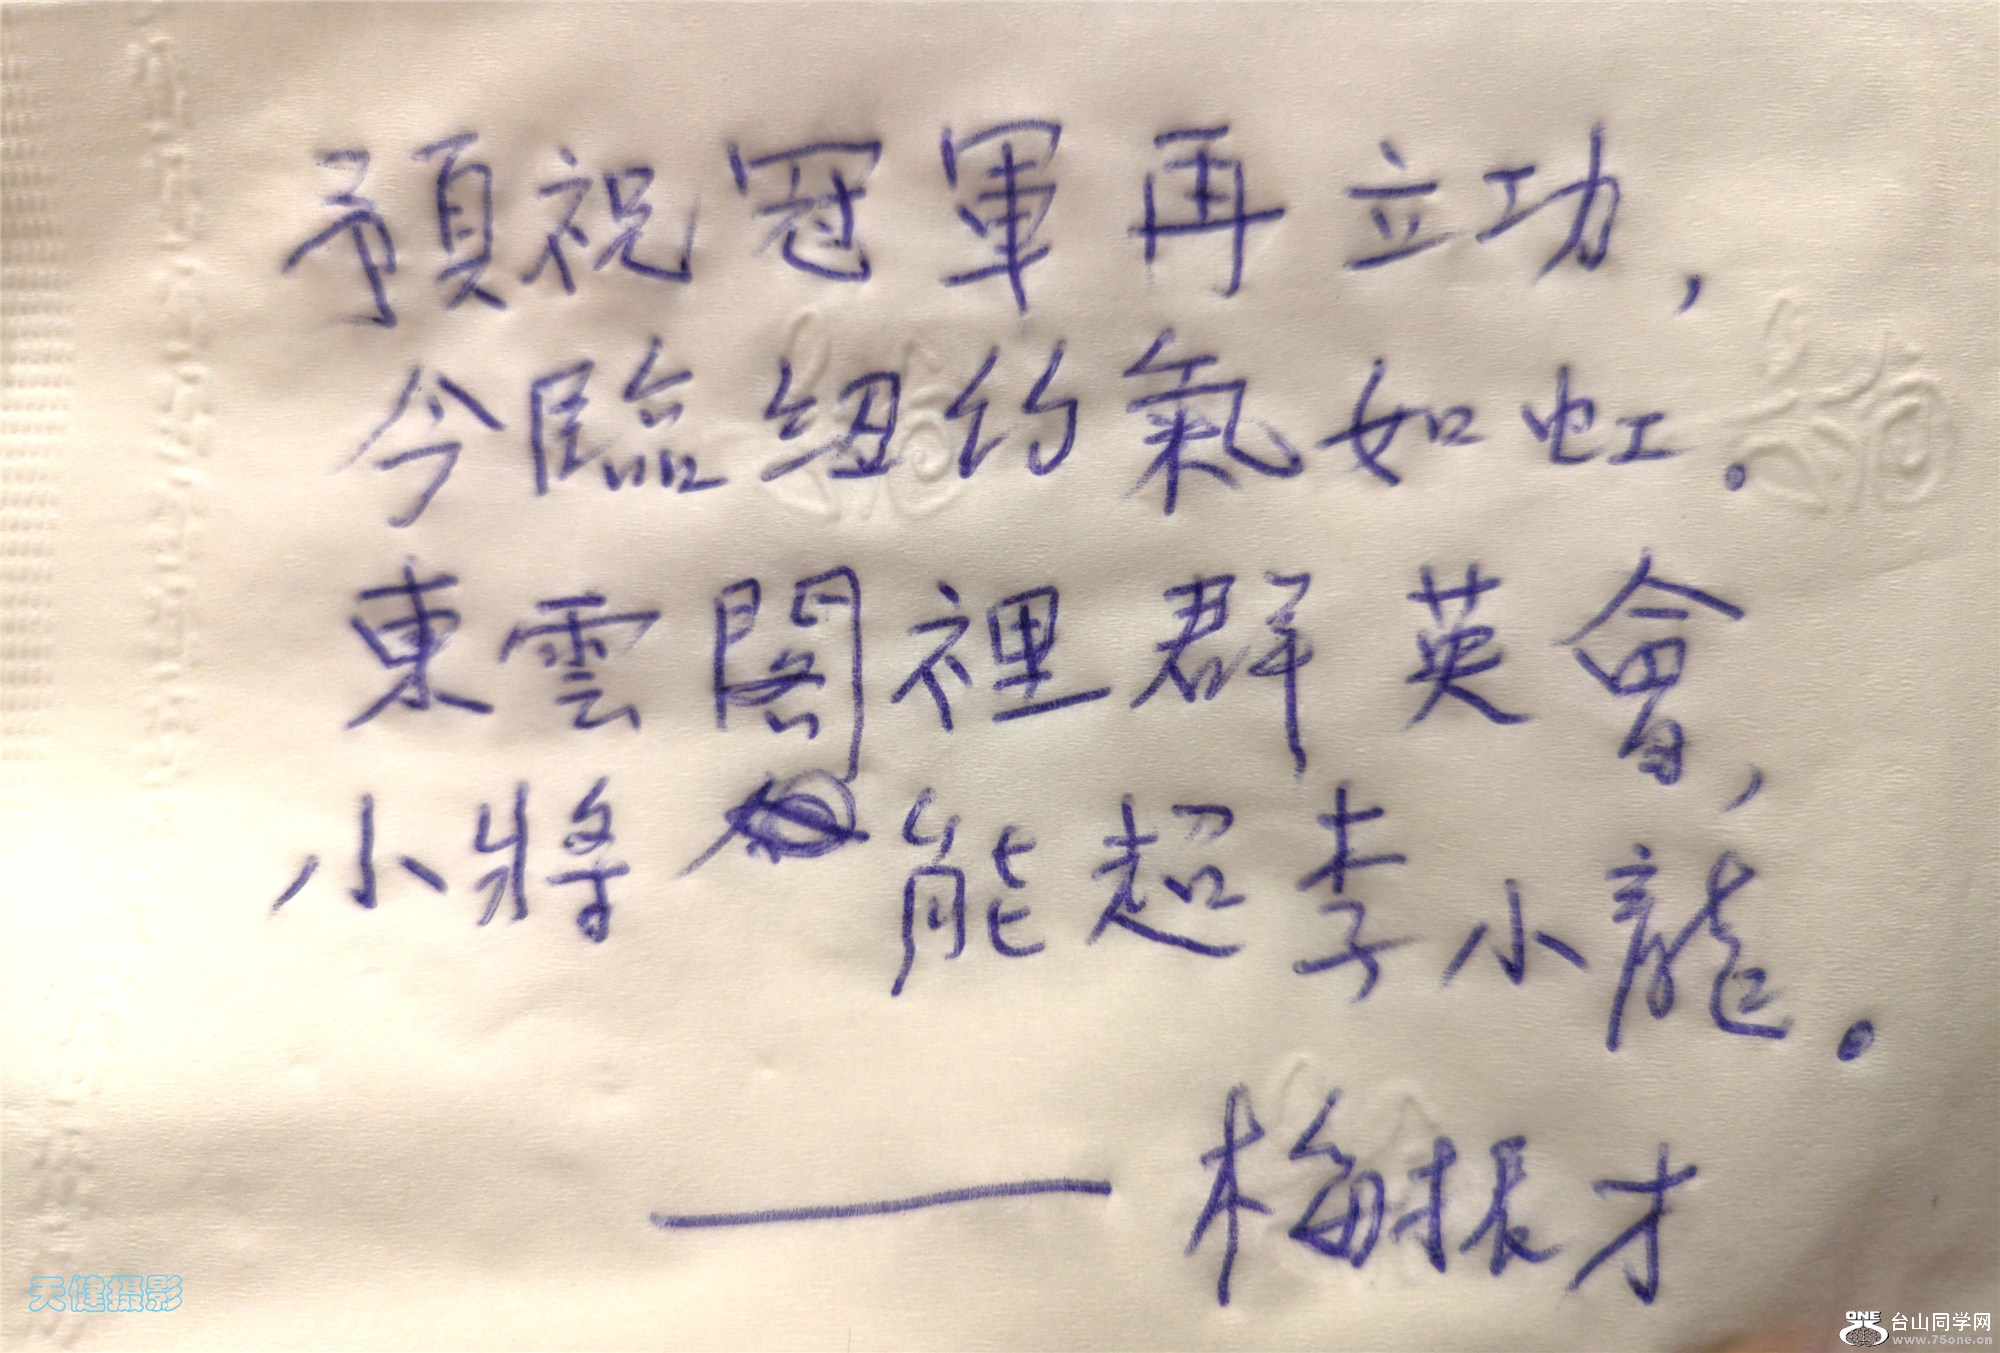 預祝冠軍再立功，
今臨紐約氣如虹。
東雲閣裡群英會，
小將能超李小龍。
——梅振才
天健摄影
ONE 台山同学网
www.75one.cn